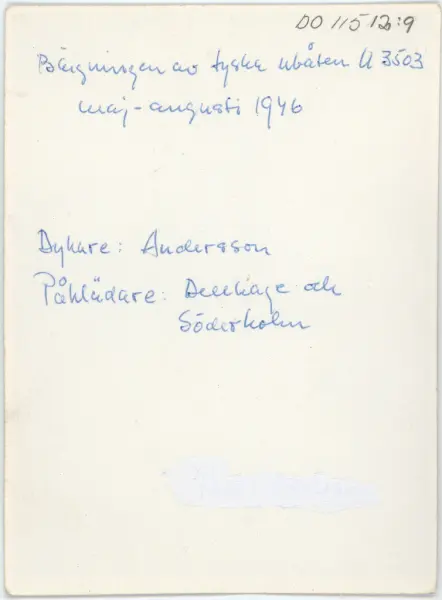 DO 115 12:9
Bärgningen av tyska ubåten U 3503
maj - augusti 1946
Dykare: Andersson
Påklädare: och
Söderholm